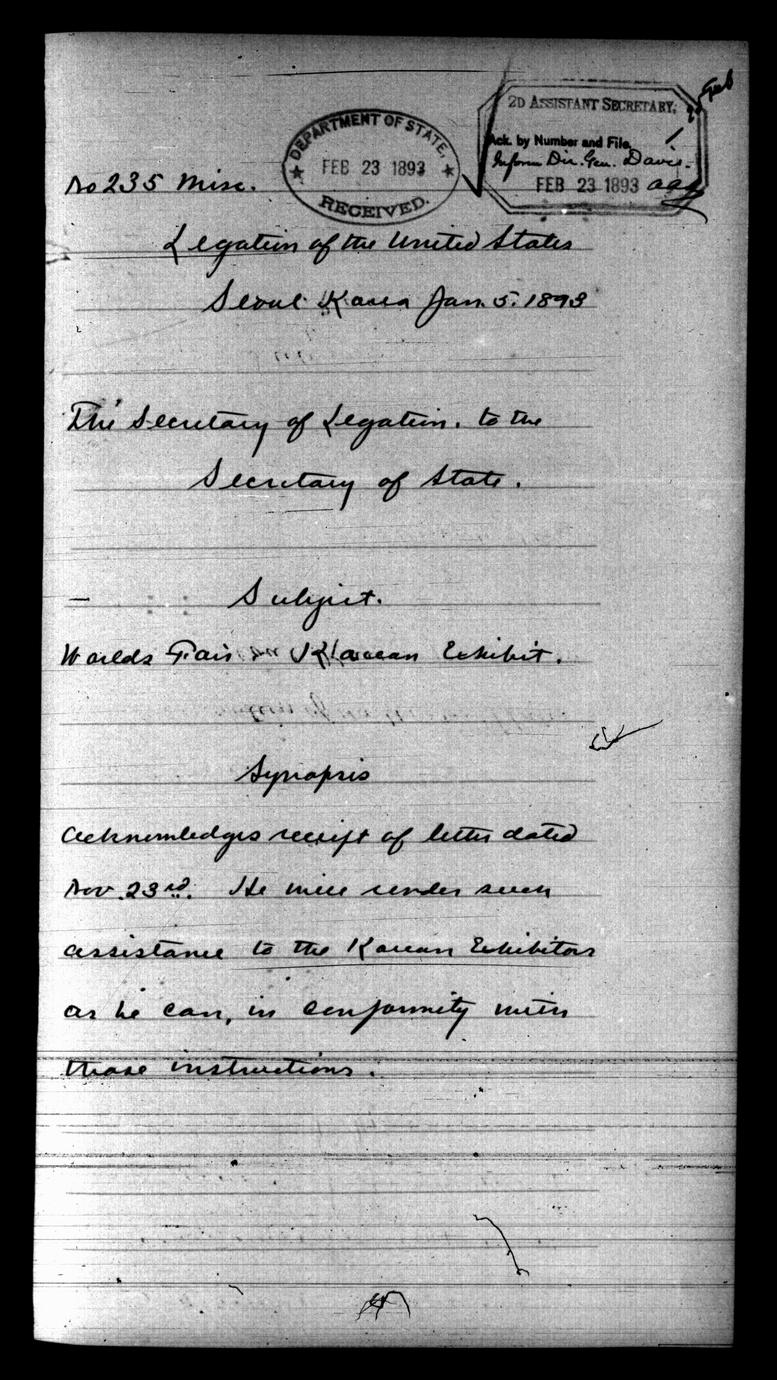 DEPARTMENT OF STATE,
FEB 23 1893
RECEIVED.
2D ASSISTANT SECRETARY,
Ack. by Number and File.
Inform Dir. Gen. Davis.
FEB 23 1893 aaa
No 235 Misc.
Legation of the United States
Seoul Korea Jan. 5. 1893
The Secretary of Legation. to the
Secretary of State.
Subject.
Worlds Fair Korean Exhibit.
Synopsis
Acknowledges receipt of letter dated
Nov. 23rd. He will render such
assistance to the Korean Exhibitors
as he can, in conformity with
those instructions.